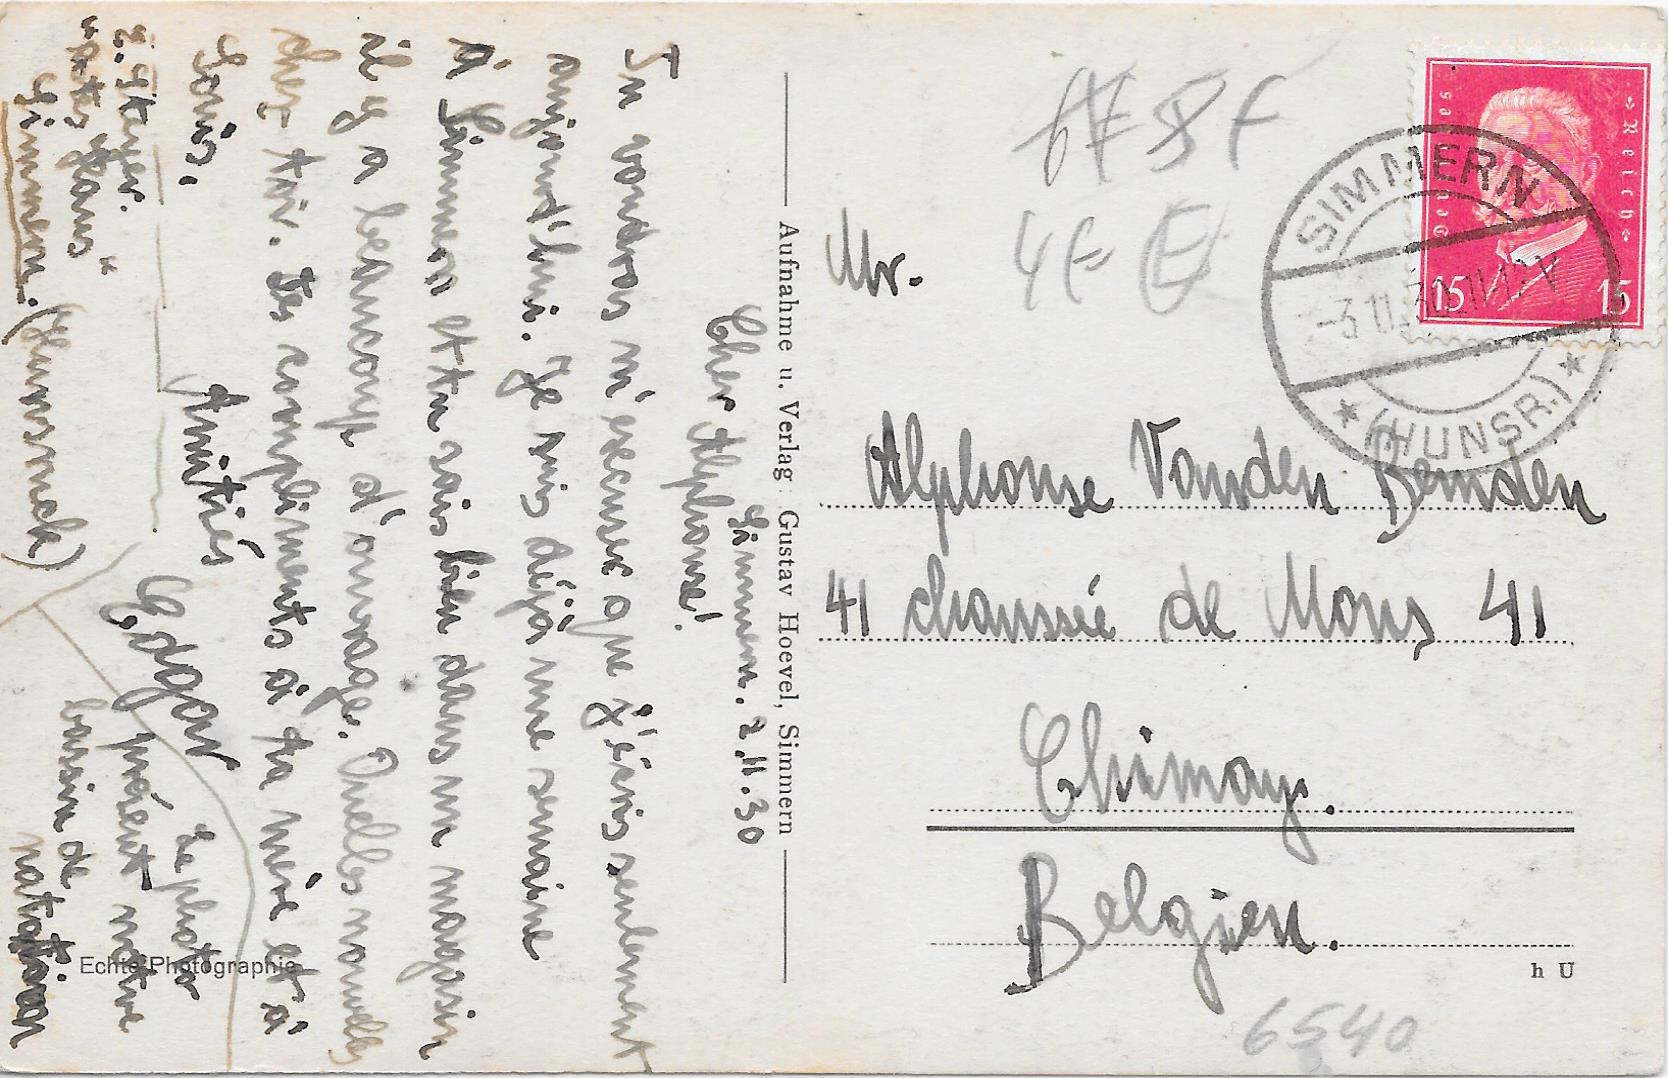 Simmern. 2.11.30
Cher Alphonse!
Tu voudras m'excuser que j'écris seulement
aujourd'hui. Je suis déjà une semaine
à Simmern et tu sais bien dans un magasin
il y a beaucoup d'ouvrage. Quelles nouvelles
chez toi. Tes compliments à ta mère et à
Amitiés
Edgar
Simmern. (Hunsrück)
Le photo
présent notre
bassin de
natation
Echte Photographie
Aufnahme u. Verlag: Gustav Hoevel, Simmern
4 F
Deutsches Reich
15 15
SIMMERN
-3.11.30.11-12 V
(HUNSR.)
Mr.
Alphonse Vanden Bemden
41 chaussée de Mons 41
Chimay.
Belgien.
h U
6540